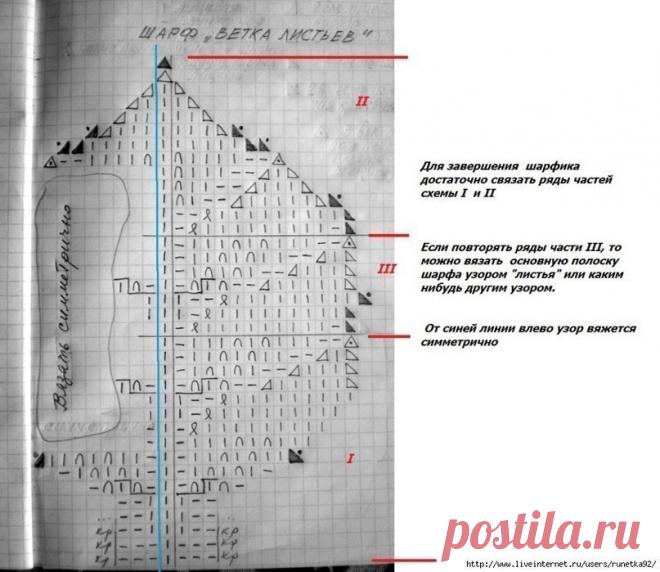 ШАРФ „ВЕТКА ЛИСТЬЕВ"
II
Для завершения шарфика
достаточно связать ряды частей
схемы I и II
Вязать симметрично
III
Если повторять ряды части III, то
можно вязать основную полоску
шарфа узором "листья" или каким
нибудь другим узором.
От синей линии влево узор вяжется
симметрично
I
кр кр
кр кр
кр кр
postila.ru
http://www.liveinternet.ru/users/runetka92/